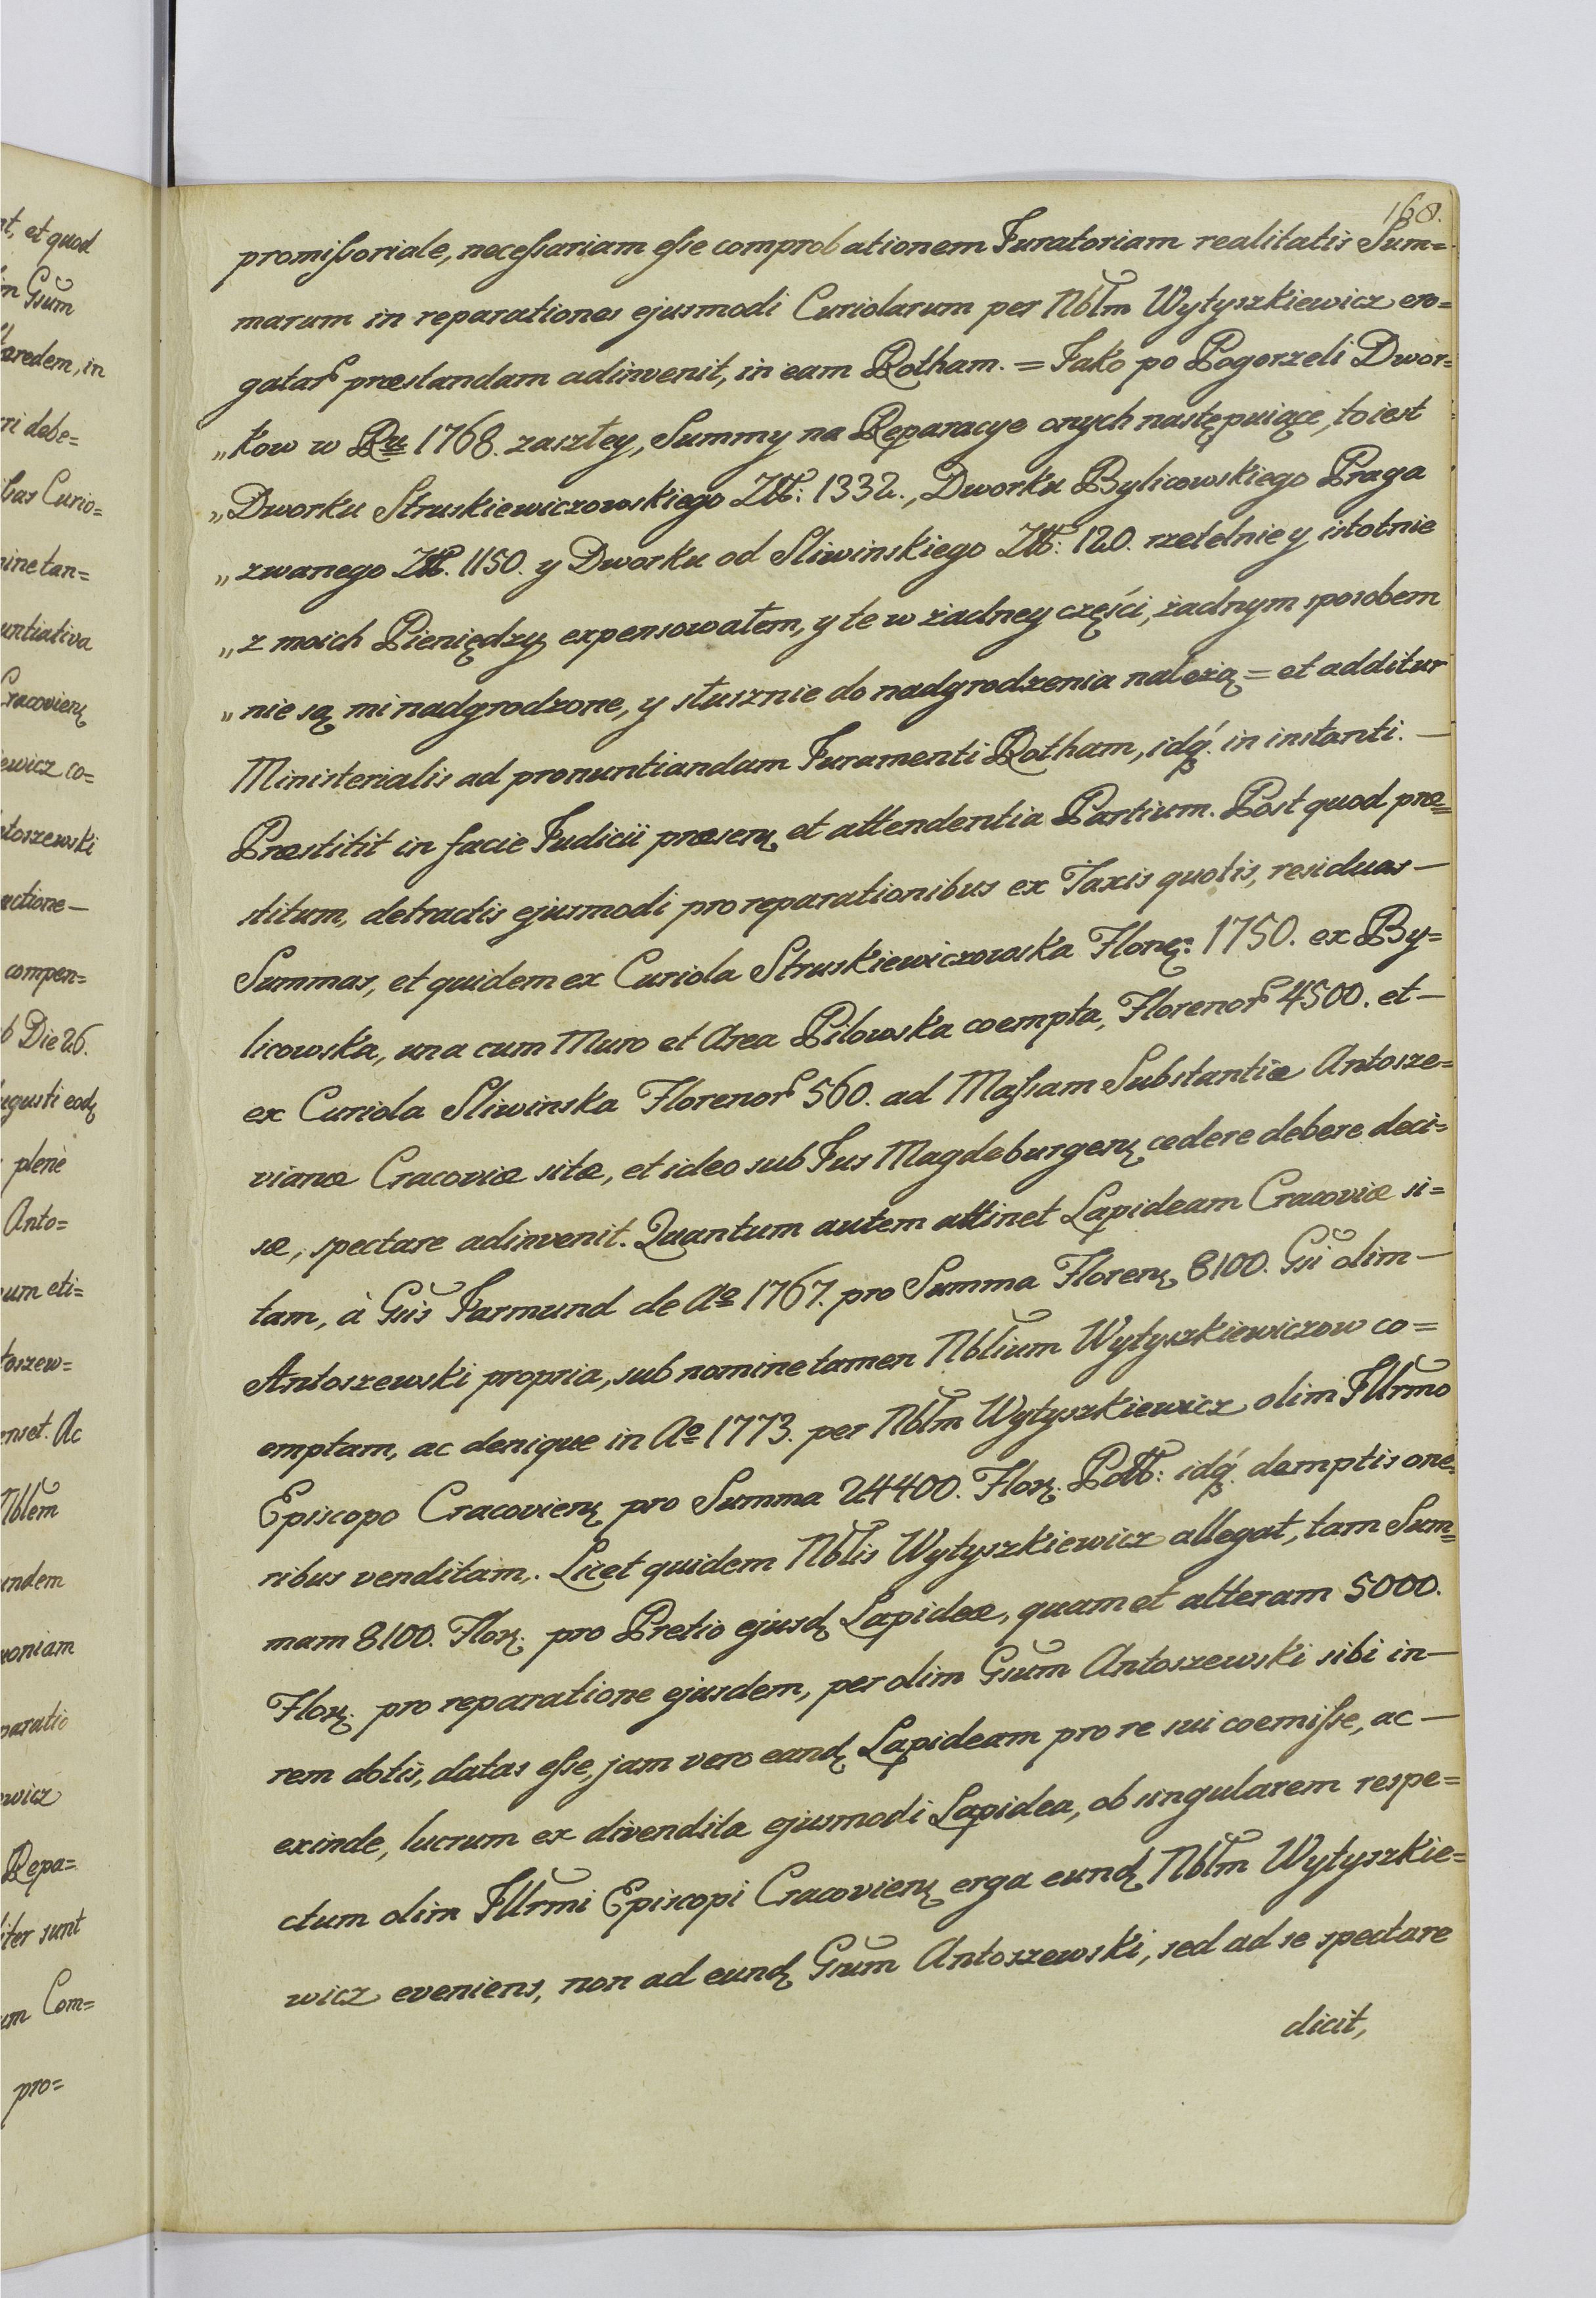 168.
promissoriale, necessariam esse comprobationem Juratoriam realitatis Sum=
marum in reparationes ejusmodi Curiolarum per Nblm Wytyszkiewicz ero=
gatar præstandam adinvenit, in eam Rotham. = Jako po Pogorzeli Dwor=
„kow w Ru 1768. zaszłey, Summy na Reparacye onych następuiące, to iest
„Dworku Struskiewiczowskiego Złł: 1332., Dworku Bylicowskiego Praga
„zwanego Złł. 1150. y Dworku od Sliwinskiego Złł: 120. rzetelnie y istotnie
„z moich Pieniędzy expensowałem, y te w żadney części, żadnym sposobem
„nie są mi nadgrodzone, y słusznie do nadgrodzenia należą = et additur
Ministerialis ad pronuntiandam Juramenti Rotham, idq́. in instanti. —
Præstitit in facie Judicii præsenȝ et attendentia Partium. Post quod præ=
stitum, detractis ejusmodi pro reparationibus ex Taxis quotis, residuas —
Summas, et quidem ex Curiola Struskiewiczowska Florenȝ: 1750. ex By=
licowska, una cum Muro et Area Pilowska coempta, Florenor 4500. et —
ex Curiola Sliwinska Florenor 560. ad Massam Substantiæ Antosze=
vianæ Cracoviæ sitæ, et ideo sub Jus Magdeburgenȝ cedere debere deci=
sæ, spectare adinvenit. Quantum autem attinet Lapideam Cracoviæ si=
tam, à Gsis Jarmund de Aº 1767. pro Summa Florenȝ 8100. Gsi olim —
Antoszewski propria, sub nomine tamen Nblium Wytyszkiewiczow co=
emptam, ac denique in Aº 1773. per Nblm Wytyszkiewicz olim Jllrmo
Episcopo Cracovienȝ pro Summa 24400. Florȝ. Pollł: idq́. demptis one=
ribus venditam,. Licet quidem Nblis Wytyszkiewicz allegat, tam Sum=
mam 8100. Florȝ. pro Pretio ejusdȝ Lapideæ, quam et alteram 5000.
Florȝ. pro reparatione ejusdem, per olim Gsum Antoszewski sibi in —
rem dotis, datas esse, jam vero eandȝ Lapideam pro re sui coemisse, ac —
exinde, lucrum ex divendita ejusmodi Lapidea, ob singularem respe=
ctum olim Jllrmi Episcopi Cracovienȝ erga eundȝ Nblm Wytyszkie=
wicz eveniens, non ad eundȝ Gsum Antoszewski, sed ad se spectare
dicit,